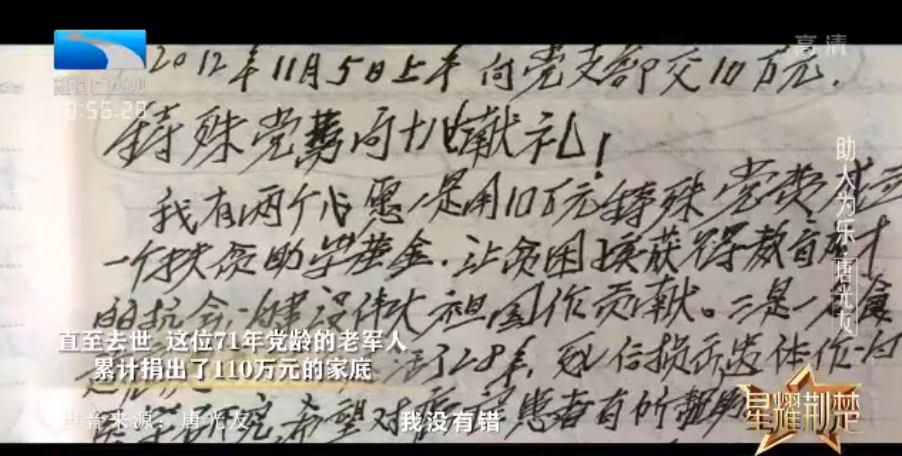 高清
2012年11月5日上午向党支部交10万元.
特殊党费向十八大献礼!
我有两个心愿一是用10万元特殊党费成立
一个扶贫助学基金.让贫困孩获得教育成才
的机会,建设伟大祖国作贡献。二是一
了28年,
研究,希望对患者有所帮助
助人为乐·唐光友
直至去世 这位71年党龄的老军人
累计捐出了110万元的家底
声音来源：唐光友
我没有错
星耀荆楚
8:56:28